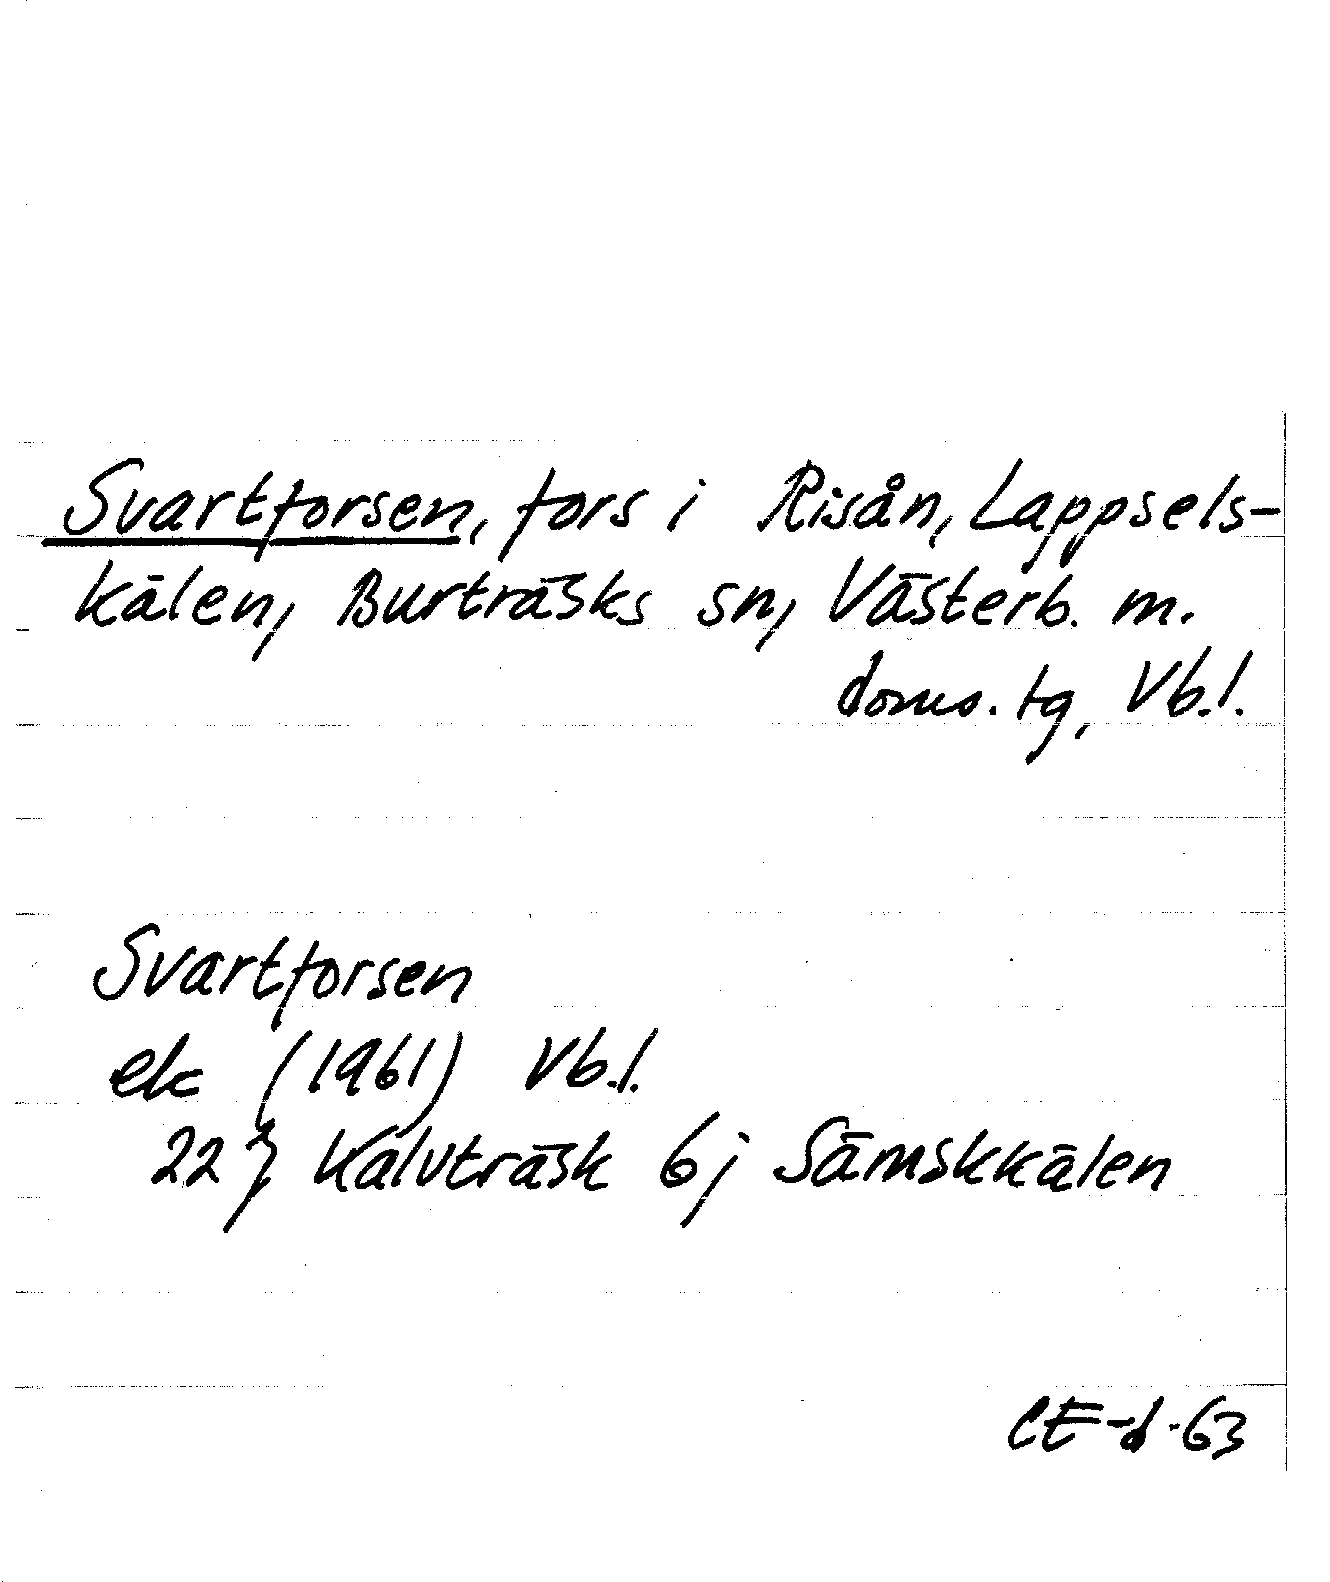 Svartforsen, fors i Risån, Lappsels-
kälen, Burträsks sn, Västerb. m.
doms. tg, Vb.l.
Svartforsen
ek (1961) Vb.l.
22 J Kalvträsk 6j Sämskkälen
CE-d-63